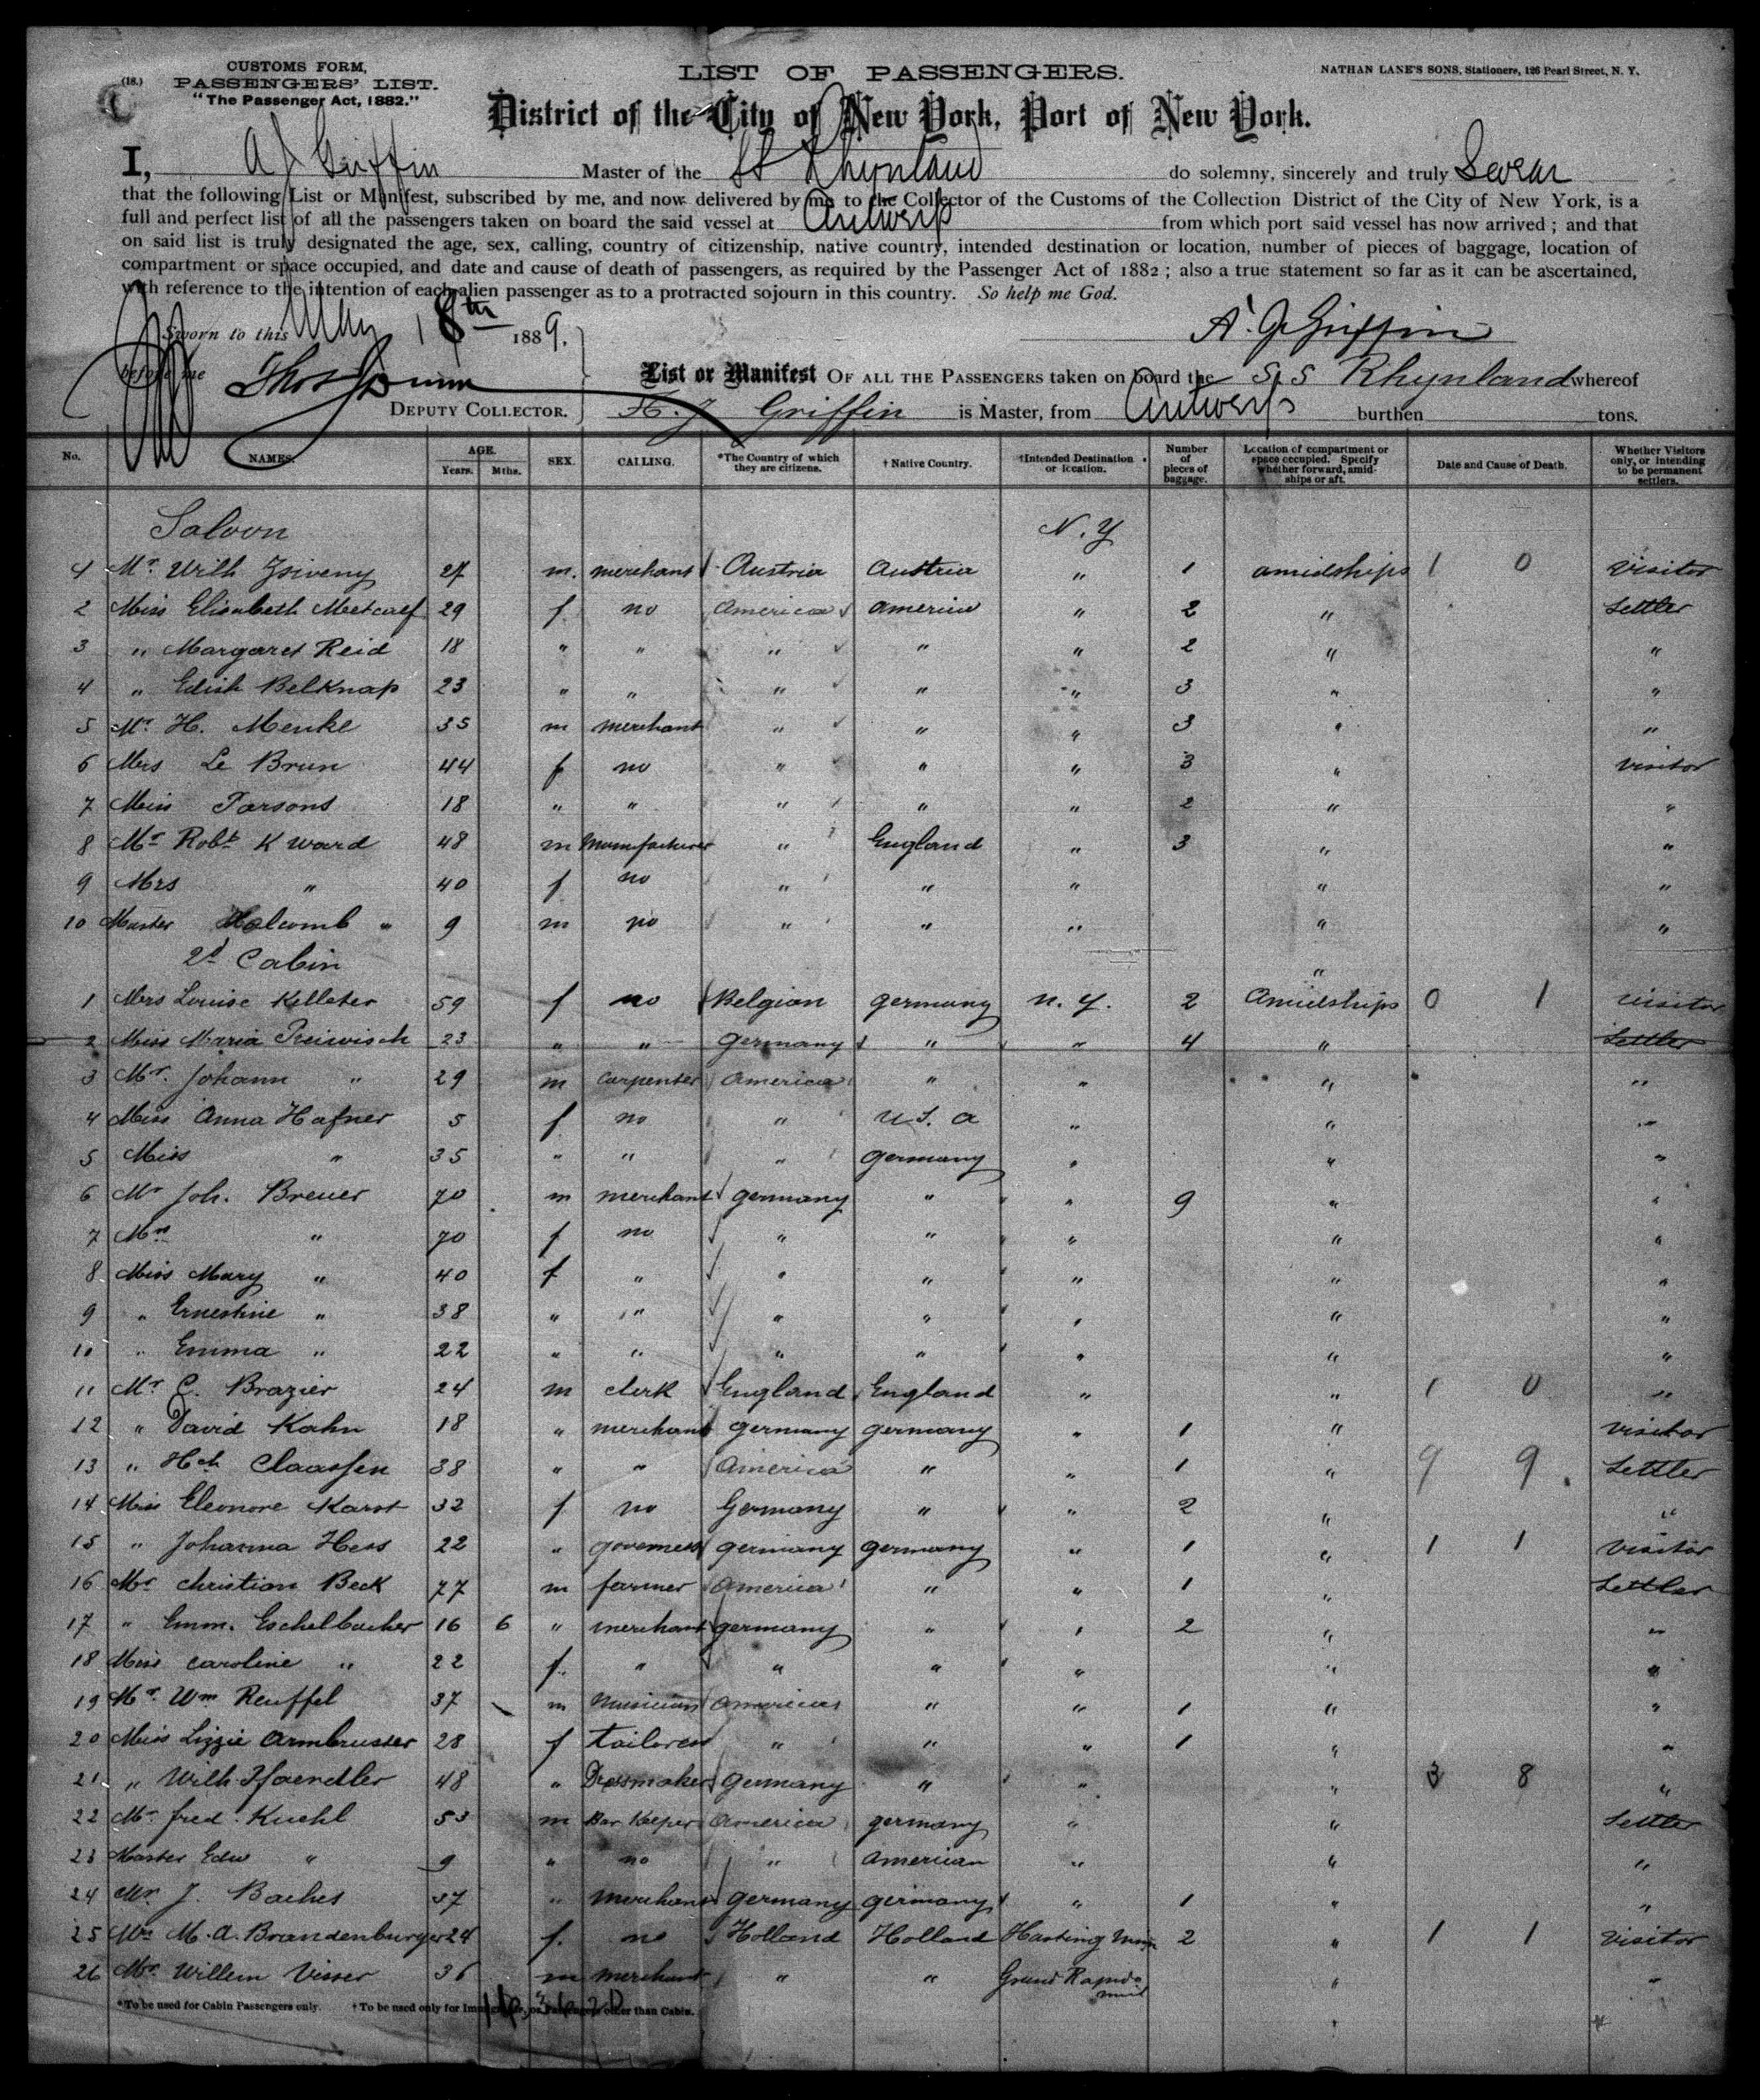 (18.)
CUSTOMS FORM,
PASSENGERS' LIST.
"The Passenger Act, 1882."
LIST OF PASSENGERS.
NATHAN LANE'S SONS, Stationers, 126 Pearl Street, N. Y.
District of the City of New York, Port of New York.
I, A J Griffin Master of the SS Rhynland do solemny, sincerely and truly Swear
that the following List or Manifest, subscribed by me, and now delivered by me to the Collector of the Customs of the Collection District of the City of New York, is a
full and perfect list of all the passengers taken on board the said vessel at Antwerp from which port said vessel has now arrived ; and that
on said list is truly designated the age, sex, calling, country of citizenship, native country, intended destination or location, number of pieces of baggage, location of
compartment or space occupied, and date and cause of death of passengers, as required by the Passenger Act of 1882 ; also a true statement so far as it can be ascertained,
with reference to the intention of each alien passenger as to a protracted sojourn in this country. So help me God.
Sworn to this May 18th 1889.
A. J. Griffin
before me Thos
DEPUTY COLLECTOR.
List or Manifest OF ALL THE PASSENGERS taken on board the S.S Rhynland whereof
H. J Griffin is Master, from Antwerp burthen tons.
No. NAMES. AGE. Years. Mths. SEX. CALLING. *The Country of which they are citizens. † Native Country. †Intended Destination or location. Number of pieces of baggage. Location of compartment or space occupied. Specify whether forward, amidships or aft. Date and Cause of Death. Whether Visitors only, or intending to be permanent settlers.
Saloon N. Y
1 Mr. Wilh Zsiveny 27 m. merchant Austria Austria " 1 amidships 1 0 visitor
2 Miss Elisabeth Metcalf 29 f. no America America " 2 " Settler
3 " Margaret Reid 18 " " " " " 2 " "
4 " Edith Belknap 23 " " " " " 3 " "
5 Mr. H. Menke 35 m merchant " " " 3 " "
6 Mrs Le Brun 44 f no " " " 3 " visitor
7 Miss Parsons 18 " " " " " 2 " "
8 Mr Robt K Ward 48 m Manufacturer " England " 3 " "
9 Mrs " 40 f no " " " " "
10 Master Holcomb " 9 m no " " " " "
2d Cabin "
1 Mrs Louise Kelleter 59 f no Belgian germany n. y. 2 Amidships 0 1 visitor
2 Miss Maria Preiwisch 23 " " Germany " " 4 " Settler
3 Mr. Johann " 29 m carpenter America " " " "
4 Miss Anna Hafner 5 f no " U.S. a " " "
5 Miss " 35 " " " germany " " "
6 Mr Joh. Breuer 70 m merchant germany " " 9 " "
7 Mrs " 70 f no " " " " "
8 Miss Mary " 40 f " " " " " "
9 " Ernestine " 38 " " " " " " "
10 " Emma " 22 " " " " " " "
11 Mr C. Brazier 24 m clerk England England " " 1 0 "
12 " David Kahn 18 " merchant germany germany " 1 " visitor
13 " Hch Claassen 38 " " America " " 1 " 9 9 Settler
14 Miss Eleonore Karst 32 f no Germany " " 2 " "
15 " Johanna Hess 22 " governess germany germany " 1 " 1 1 visitor
16 Mr christian Beck 77 m farmer America " " 1 " Settler
17 " Emm. Eschelbacher 16 6 " merchant germany " " 2 " "
18 Miss caroline " 22 f. " " " " " "
19 Mr. Wm Reuffel 37 m musician America " " 1 " "
20 Miss Lizzie Armbruster 28 f tailoress " " " 1 " "
21 " Wilh Pfaendler 48 " Dressmaker germany " " " 3 8 "
22 Mr fred. Kuehl 53 m Bar Keeper America germany " " Settler
23 Master Edw " 9 " no " American " " "
24 Mr J. Baches 37 " merchant germany germany " 1 " "
25 Mrs M. A. Brandenburger 24 f. no Holland Holland Hasting Minn 2 " 1 1 Visitor
26 Mr. Willem Visser 36 m merchant " " Grand Rapids " "
*To be used for Cabin Passengers only. †To be used only for Immigrants, or Passengers other than Cabin.